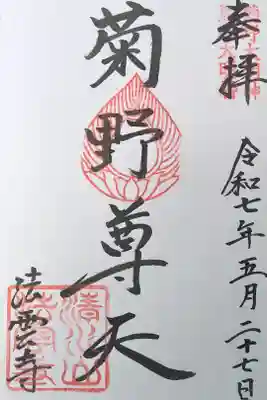 奉拝
令和七年五月二十七日
菊野尊天
法雲寺